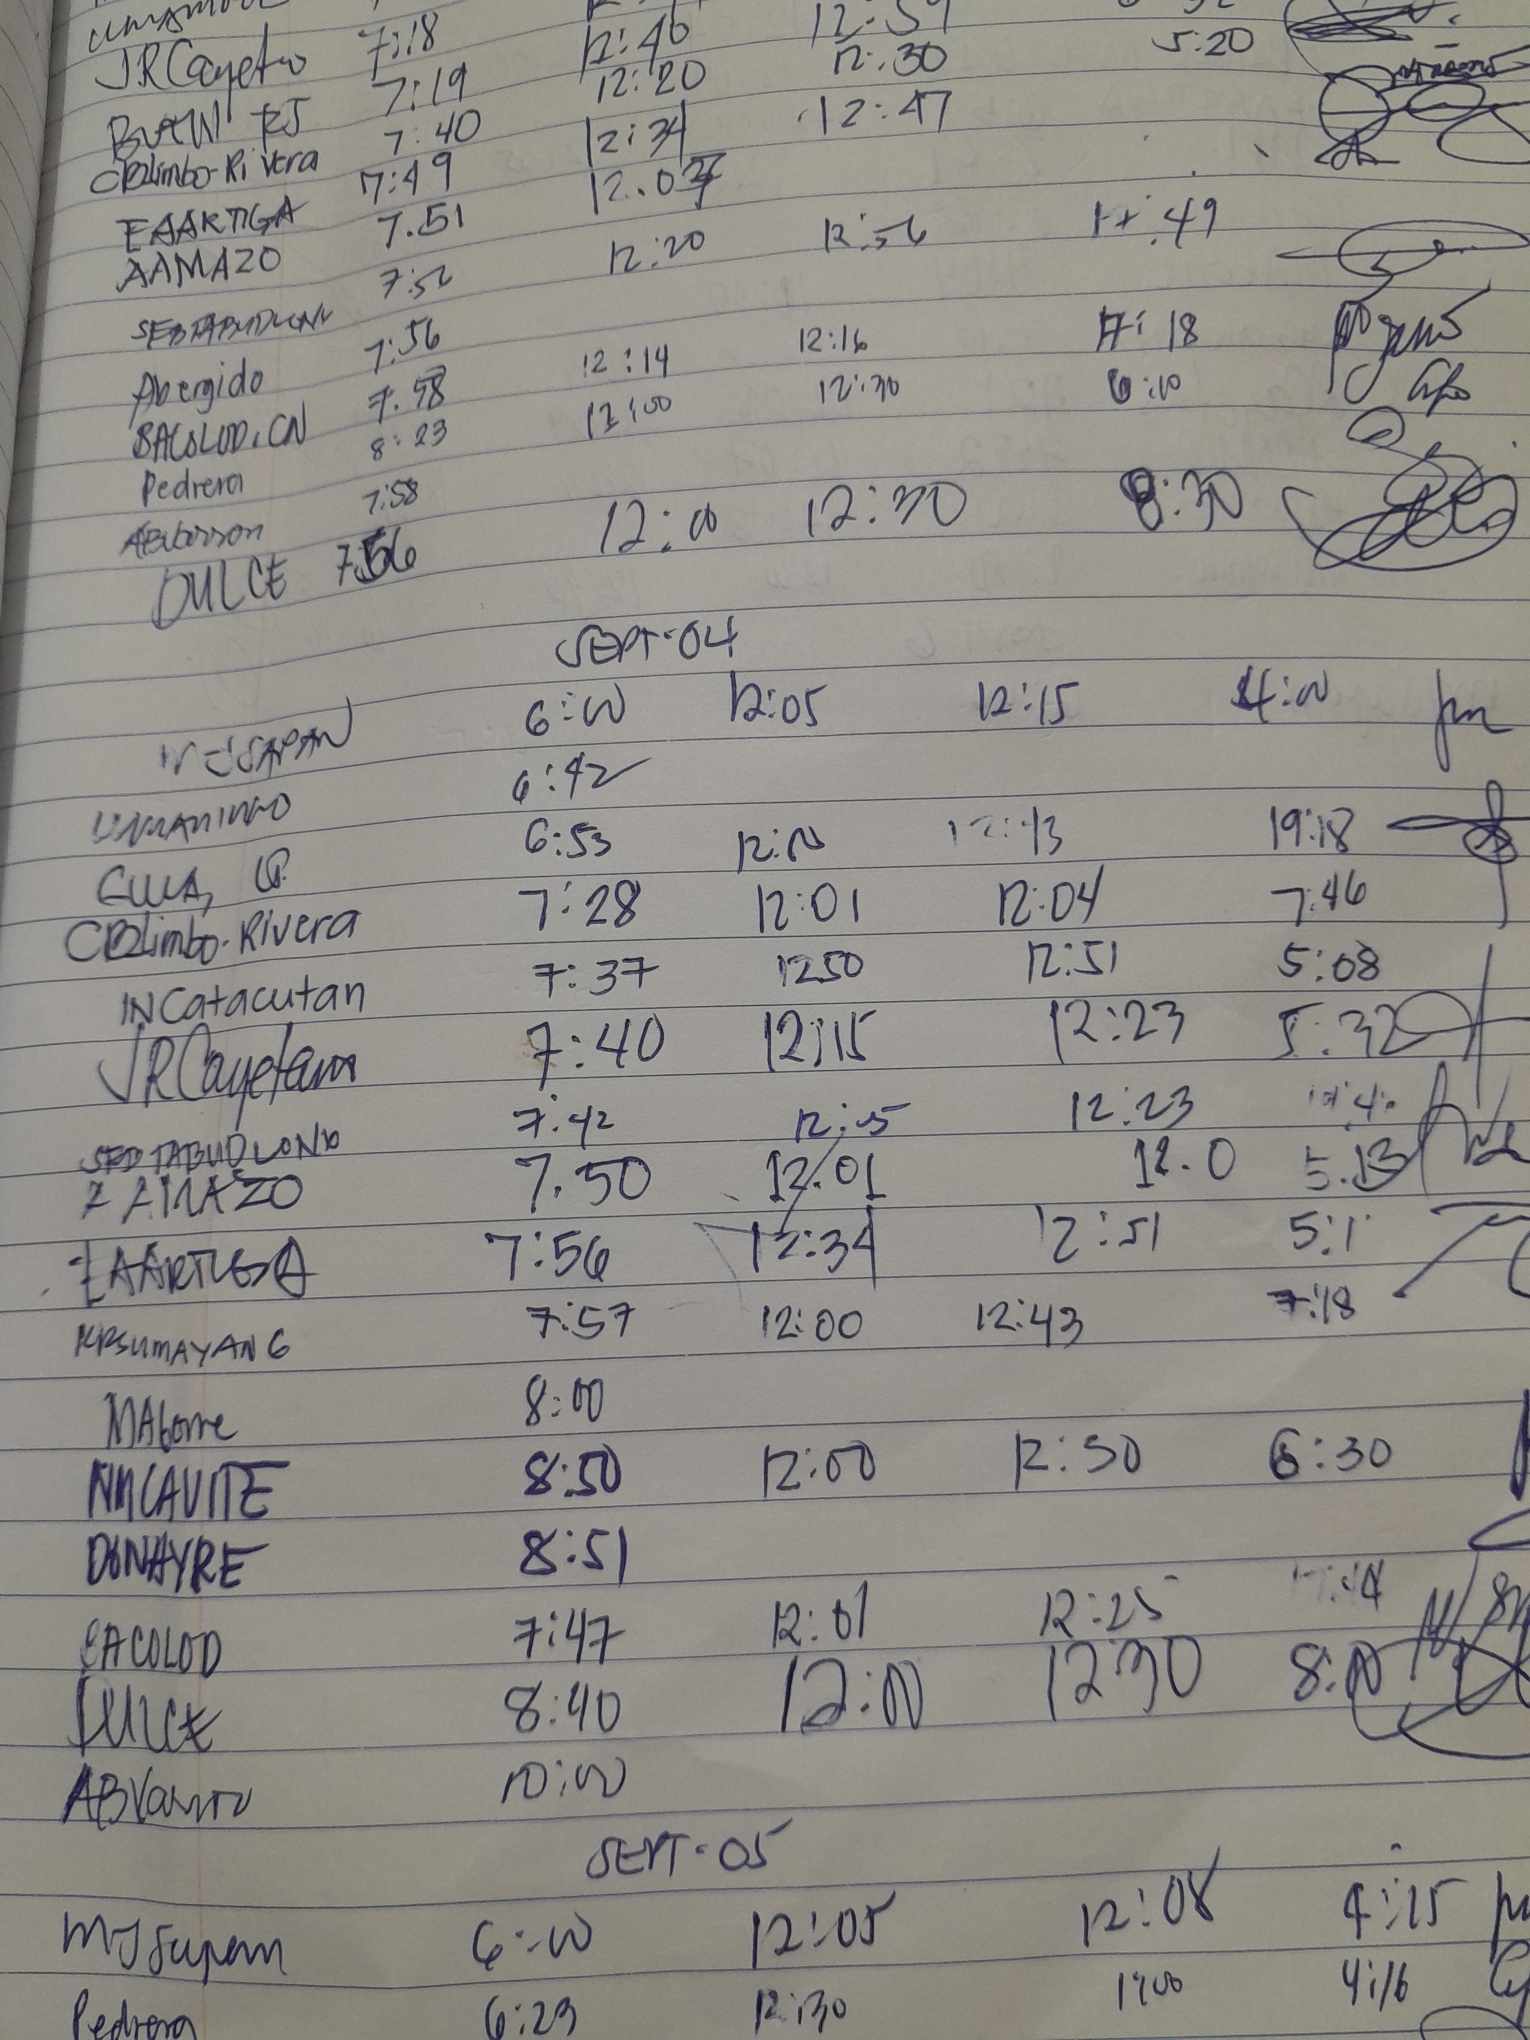 JRCayetano 7:18 12:46 12:59
BUAN RJ 7:19 12:20 12:30 5:20
CBLimbo-Rivera 7:40 12:34 12:47
EAARTIGA 7:49 12.03
AAMAZO 7.51 12:20 12:56 17:49
SEBTABUDLONG 7:52
Abergido 7:56 12:14 12:16 17:18
BACOLOD, CN 7.58 12:00 12:30 6:00
Pedrera 8:23
7:58
DULCE 7:56 12:00 12:30 8:30
SEPT-04
MJSAPAN 6:00 12:05 12:15 4:00
6:42
6:53 12:00 12:43 19:18
CBLimbo-Rivera 7:28 12:01 12:04 7:46
INCatacutan 7:37 1250 12:51 5:08
JRCayetano 7:40 12:15 12:23 5:32
SEBTABUDLONG 7:42 12:15 12:23
AAMAZO 7.50 12.01 12.0 5.13
EAARTIGA 7:56 12:34 12:51 5:1
KPSUMAYANG 7:57 12:00 12:43 7:18
8:00
NMCAVITE 8:50 12:00 12:30 6:30
DONAYRE 8:51
BACOLOD 7:47 12:01 12:25
DULCE 8:40 12:00 1230 8:00
10:00
SEPT-05
MJSapan 6:00 12:05 12:08 4:15
Pedrera 6:23 12:30 1:00 4:16